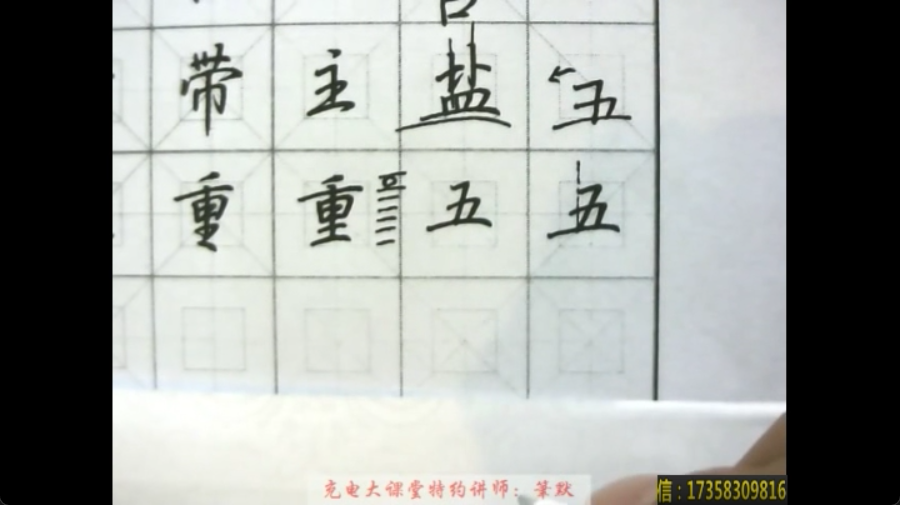 带 主 盐 五
重 重 五 五
充电大课堂特约讲师：笔默
信：17358309816